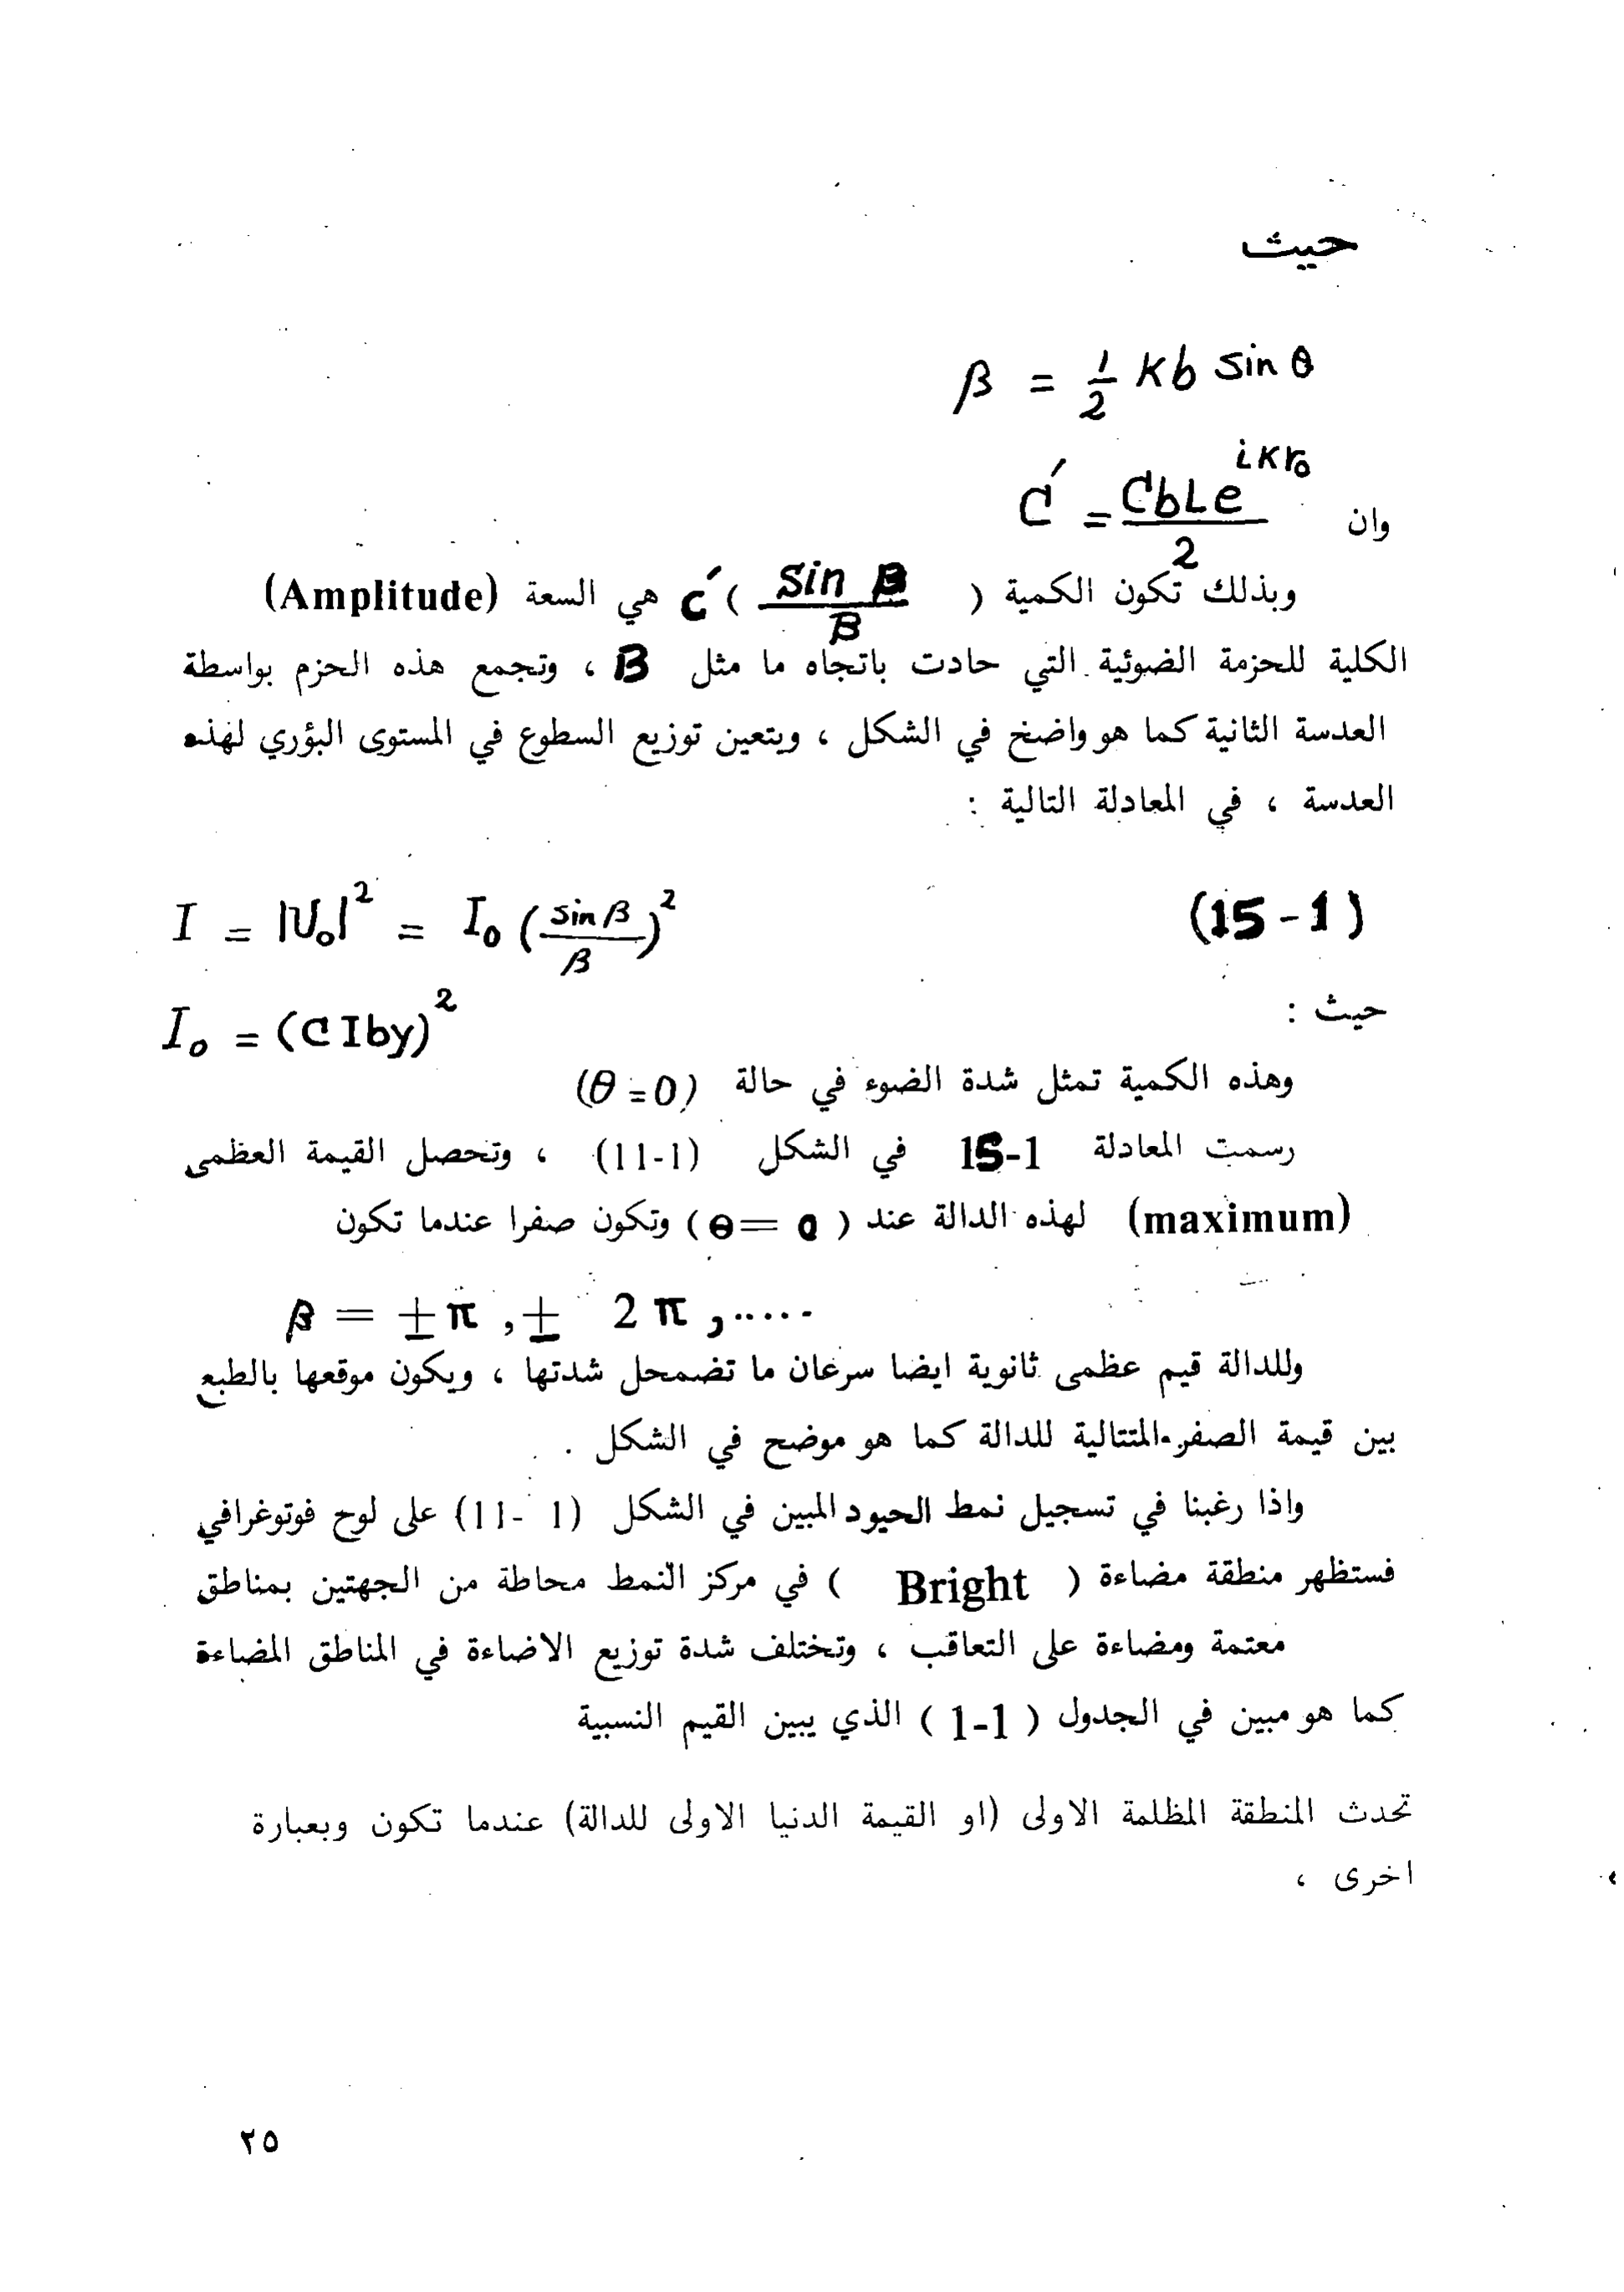 حيث
β = 1/2 Kb sin θ
وان C′ = CbLe^iKr₀ / 2
وبذلك تكون الكمية ( sin β / β ) C′ هي السعة (Amplitude)
الكلية للحزمة الضوئية التي حادت باتجاه ما مثل β ، وتجمع هذه الحزم بواسطة
العدسة الثانية كما هو واضخ في الشكل ، ويتعين توزيع السطوع في المستوى البؤري لهذه
العدسة ، في المعادلة التالية :
I = |U₀|² = I₀ (sin β / β)² (15-1)
حيث :
I₀ = (CIby)²
وهذه الكمية تمثل شدة الضوء في حالة (θ=0)
رسمت المعادلة 15-1 في الشكل (11-1) ، وتحصل القيمة العظمى
(maximum) لهذه الدالة عند (θ=0) وتكون صفرا عندما تكون
β = ±π ,± 2π ,.....
وللدالة قيم عظمى ثانوية ايضا سرعان ما تضمحل شدتها ، ويكون موقعها بالطبع
بين قيمة الصفر المتتالية للدالة كما هو موضح في الشكل .
واذا رغبنا في تسجيل نمط الحيود المبين في الشكل (11-1) على لوح فوتوغرافي
فستظهر منطقة مضاءة ( Bright ) في مركز النمط محاطة من الجهتين بمناطق
معتمة ومضاءة على التعاقب ، وتختلف شدة توزيع الاضاءة في المناطق المضاءة
كما هو مبين في الجدول ( 1-1 ) الذي يبين القيم النسبية
تحدث المنطقة المظلمة الاولى (او القيمة الدنيا الاولى للدالة) عندما تكون وبعبارة
اخرى ،
٢٥